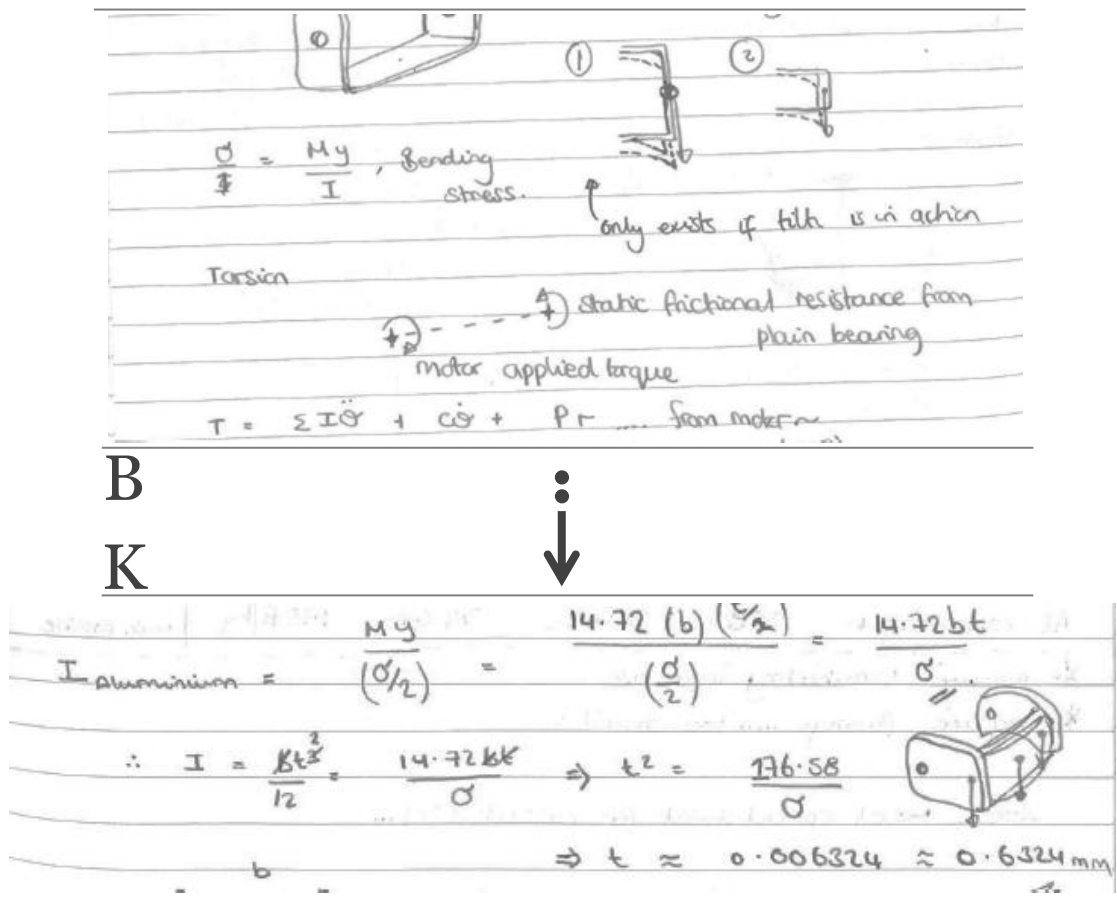 ① ②
σ/I = My/I , Bending
stress.
only exists if tilt is in action
Torsion
static frictional resistance from
plain bearing
motor applied torque
T = Σ I θ̈ + c θ̇ + Pr .... from motor
B
K
I Aluminium = My/(σ/2) = 14.72 (b) (t/2)/(σ/2) = 14.72bt/σ
∴ I = bt³/12 = 14.72bt/σ ⇒ t² = 176.58/σ
⇒ t ≈ 0.006324 ≈ 0.6324mm
b